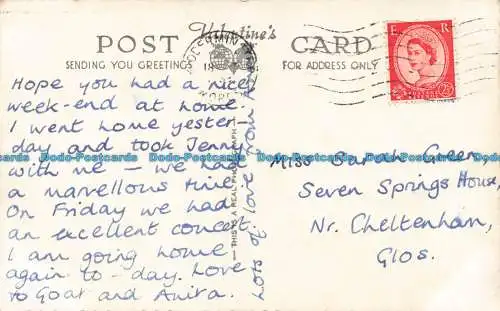 POST CARD
Valentine's
SENDING YOU GREETINGS
FOR ADDRESS ONLY
E R
Hope you had a nice
week-end at home.
I went home yester
day and took Jenny
with me - we had
a marvellous time
On Friday we had
an excellent concert
I am going home
again to-day. Love
to Goat and Anita.
Lots of love from
THIS IS A REAL PHOTOGRAPH
Miss Sarah Green,
Seven Springs House,
Nr. Cheltenham,
Glos.
Dodo-Postcards Dodo-Postcards Dodo-Postcards Dodo-Postcards Dodo-Postcards Dodo-Postcards